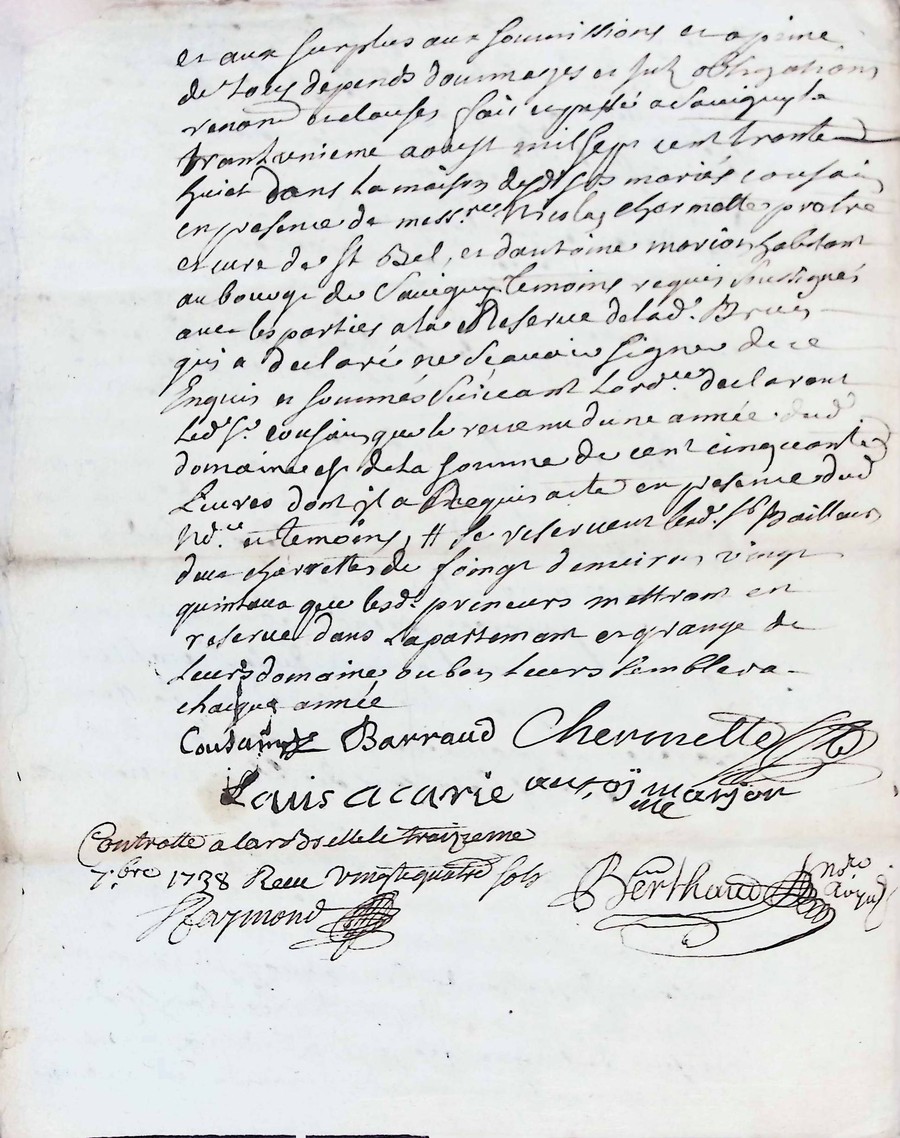 et aux surplus aux soumissions et a peine
de tous depends dommages et sub obligations
renond et clauses fait et passé a Savigny le
trantunieme aoust mil sept cent trante
huict dans la maison desd. srs mariés cousain
en presence de mess.re Nicolas Chermette prbtre
et cure de St Bel, et dantoine marion habitant
au bourg de Savigny temoins requis soussignés
avec les parties a la Reserve de lad. Brun
qui a declaré ne scavoir signer de ce
Enquis et sommés suivant lord.ce declarant
led. Sr. cousain que le revenu dune année dud.
domaine est de la somme de cent cinquante
Livres dont il a Requis acte en presence dud.
No.re et temoins, # se reservent lesd. Srs Bailleurs
deux charrettes de foingt denviron vingt
quintaux que lesd. preneurs mettront en
reserve dans Lapartemant et grange de
leurs domaine ou bon leurs semblera
chaque année
Cousain Barraud Chermette
Louis acarie antoine marion
Controllé a Larbrelle le traizieme
7.bre 1738 Receu vingt quatre sols
Raymond
Berthaud No.re Royal